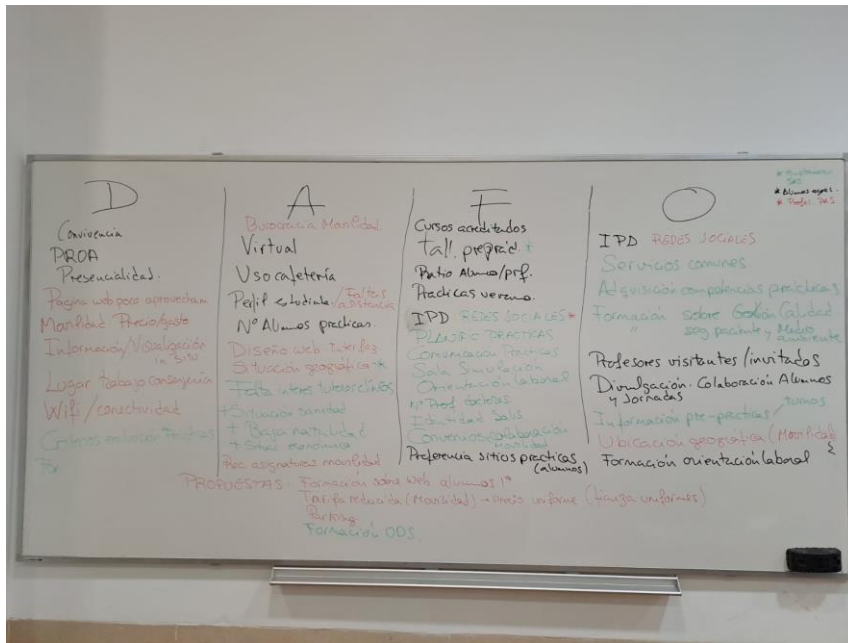 D
Convivencia
PROA
Presencialidad.
Pagina web poco aprovecham.
Movilidad Precio/gasto
Información/Visualización
in situ
Lugar trabajo conserjería
Wifi/conectividad
Criterios evaluación Prácticas
A
Burocracia Movilidad
Virtual
Uso cafetería
Perfil estudiante /Faltas
a Distancia
Nº Alumnos practicas.
Diseño web interfaz
Situación geográfica *
Falta interes tutores clínicos
+ Situación sanitad
+ Baja natalidad
+ Situac económica
Rec asignaturas movilidad
F
Cursos acreditados
Tall. prepráct. *
Ratio Alumno/prf.
Practicas verano.
IPD REDES SOCIALES *
PLANIFIC PRÁCTICAS
Comunicación Prácticas
Sala Simulación
Orientación laboral
Nº Prof doctores
Identidad Salus
Convenios colaboración
movilidad
Preferencia sitios practicas
(alumnos)
O
* Alumnos egres.
* Profes. PAS
IPD REDES SOCIALES
Servicios comunes
Adquisición competencias prácticas
Formación sobre Gestión Calidad
" seg paciente y Medio
ambiente
Profesores visitantes/invitados
Divulgación. Colaboración Alumnos
y Jornadas
Información pre-practicas/turnos
Ubicación geográfica (Movilidad)
Formación orientación laboral
PROPUESTAS: Formación sobre web alumnos 1º
Tarifa reducida (Movilidad) → precio uniforme (fianza uniformes)
Parking
Formación ODS.